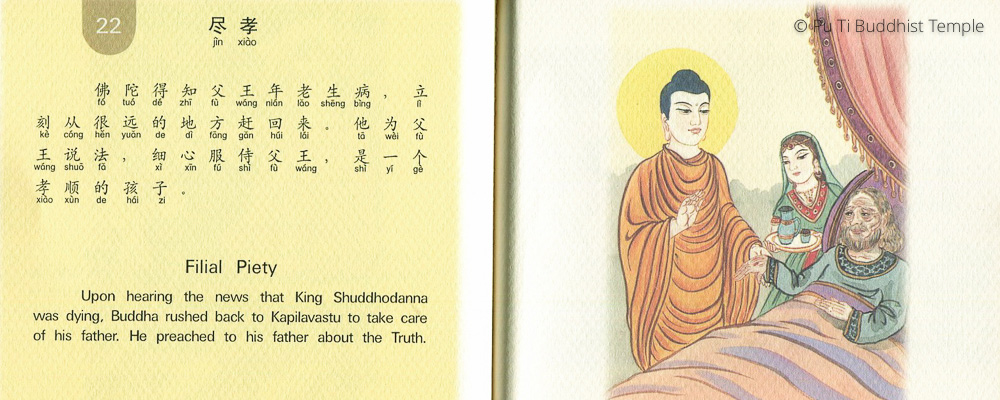 22
尽孝
jìn xiào
佛陀得知父王年老生病，立
fó tuó dé zhī fù wáng nián lǎo shēng bìng lì
刻从很远的地方赶回来。他为父
kè cóng hěn yuǎn de dì fāng gǎn húi lái tā wèi fù
王说法，细心服侍父王，是一个
wáng shuō fǎ xì xīn fú shì fù wáng shì yí gè
孝顺的孩子。
xiào xùn de hái zi
Filial Piety
Upon hearing the news that King Shuddhodanna
was dying, Buddha rushed back to Kapilavastu to take care
of his father. He preached to his father about the Truth.
© Pu Ti Buddhist Temple